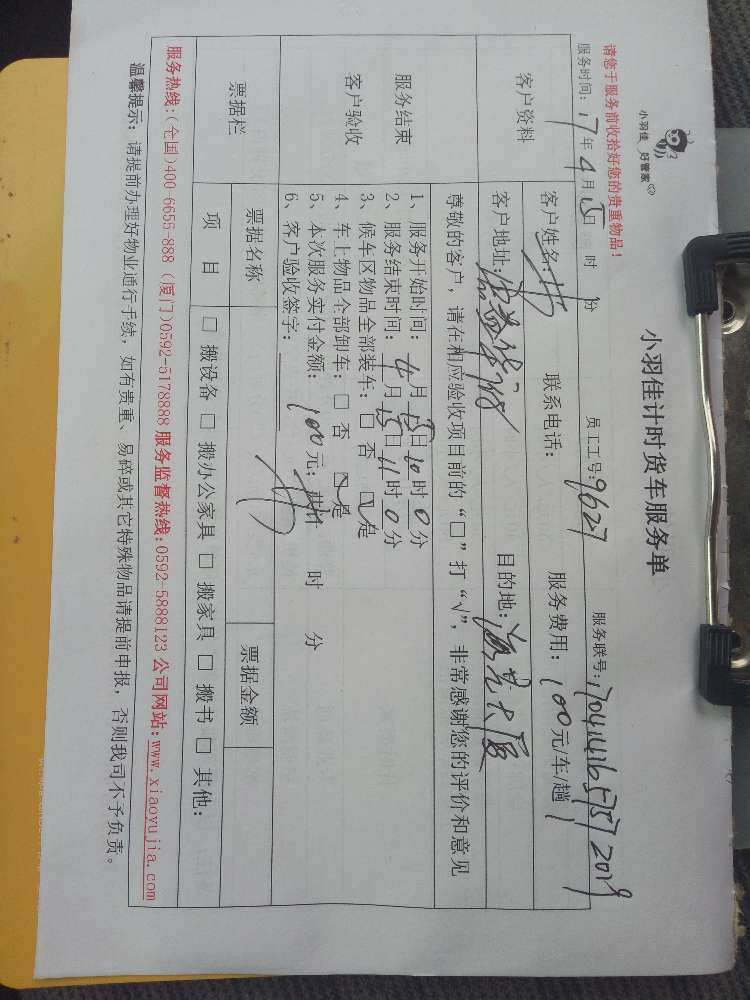 小羽佳 好管家
小羽佳计时货车服务单
请您于服务前收拾好您的贵重物品！
服务时间：17年4月15日 时 份 员工工号：9627 服务联号：
客户资料
客户姓名： 联系电话： 服务费用：100元/车/趟
客户地址： 目的地：大厦
尊敬的客户，请在相应验收项目前的“□”打“√”，非常感谢您的评价和意见
服务结束
客户验收
1、服务开始时间：4月15日10时0分
2、服务结束时间：4月15日11时0分
3、候车区物品全部装车：□ 否 ☑ 是
4、车上物品全部卸车：□ 否 ☑ 是
5、本次服务实付金额：100元；共计 时 分
6、客户验收签字：
票据栏
票据名称 票据金额
项 目 □ 搬设备 □ 搬办公家具 □ 搬家具 □ 搬书 □ 其他：
服务热线：(全国)400-6655-888 (厦门)0592-5178888 服务监督热线：0592-5888123 公司网站：www.xiaoyujia.com
温馨提示：请提前办理好物业通行手续，如有贵重、易碎或其它特殊物品请提前申报，否则我司不予负责。